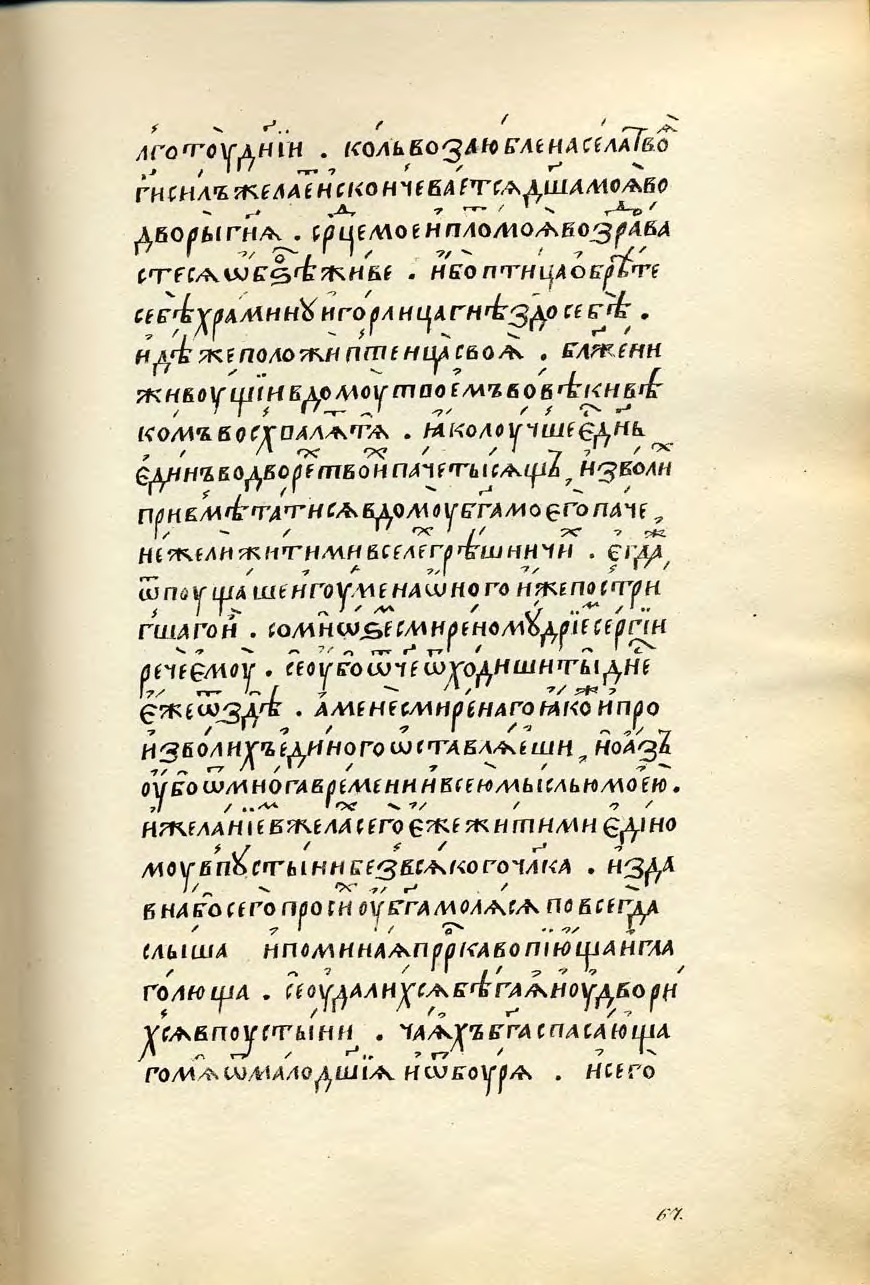 лготоу дн҃їи . коль возлюблена села твоꙗ̀
гн҃и силъ желает и скончеваетсѧ дш҃а моѧ во
дворы гн҃ѧ . срⷣце мое и пло моѧ возраⷣва
стесѧ ѡ бѕ҃ѣ живѣ . ибо птица обрѣте
себѣ храминꙋ и горлица гнѣздо себѣ .
идѣже положи птенца своѧ . блж҃ени
живоущїи в домоу твоемъ во вѣки вѣ
комъ восхвалѧт тѧ . ꙗко лоучше є҆динъ дн҃ь
є҆динъ во дворех твоих паче тысѧщь, изволих
привмѣтатисѧ в домоу бг҃а моєго паче,
нежели жити ми в селех грѣшничих . є҆гда
ѿпоущаше игоумена ѡного иже постри
гшаго и . со мнѡѕем смиреномоудрїем сергїи
рече є҆моу . се оубо ѿче ѿходиши ты днⷭе
є҆же ѿ здѣ . а мене смиренаго ꙗкоже и про
изволихъ единого ѡставлѧеши, но азъ
оубо ѿ многа времени и всею мыслью моею .
и желанїем вжелах сего є҆же жити ми є҆діно
моу в пꙋстыни без всѧкого чл҃ка . издa
вна бо сего просих оу бг҃а молѧсѧ по всегда
слыша и поминаѧ прⷪрка вопїюща и гла
голюща . се оудалихсѧ бѣгаѧ и оудвори
хсѧ в поустыни . чаѧхъ бг҃а спасающа
го мѧ ѿ малодш҃їѧ и ѿ боурѧ . и сего
67.